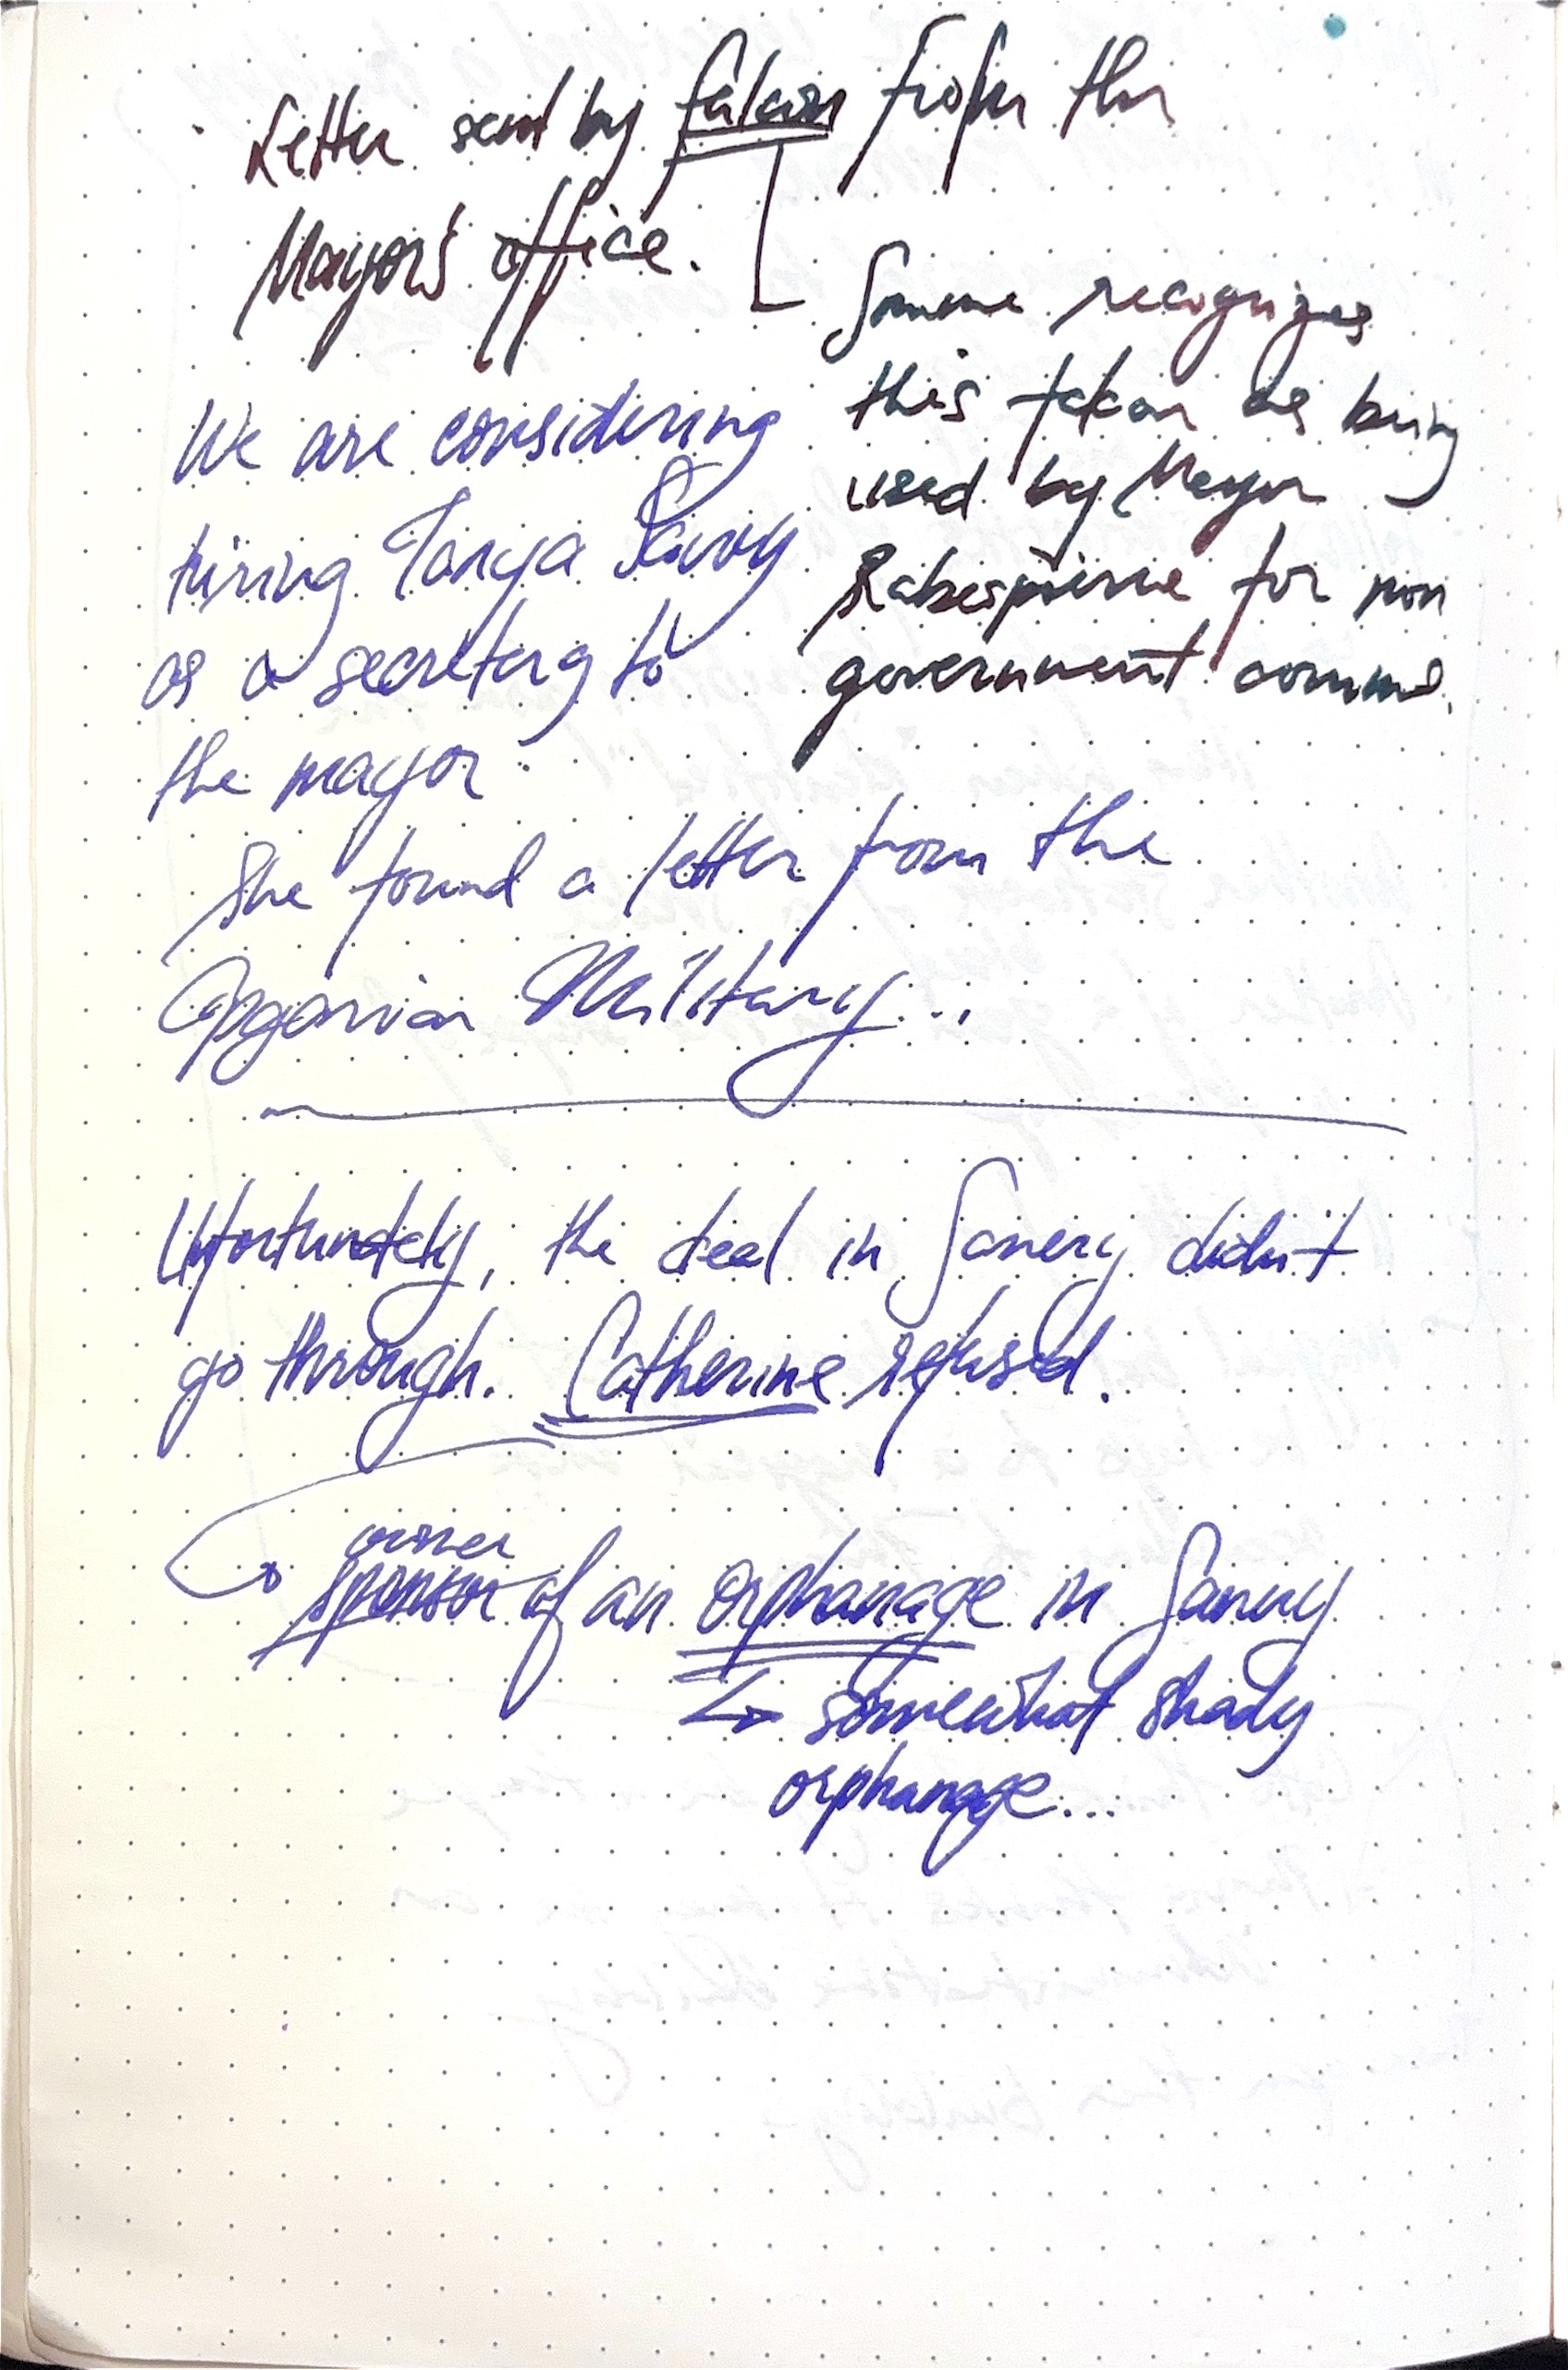 Letter send by falcon from the
Mayor's office.
Somme recognizes
this falcon as being
used by Mayor
Robespierre for non
government comms.
We are considering
hiring Tanya
as a secretary to
the mayor
She found a letter from the
Military...
Unfortunately, the deal in Sanery didn't
go through. Catherine refused.
owner
sponsor of an orphanage in Sanery
somewhat shady
orphanage...